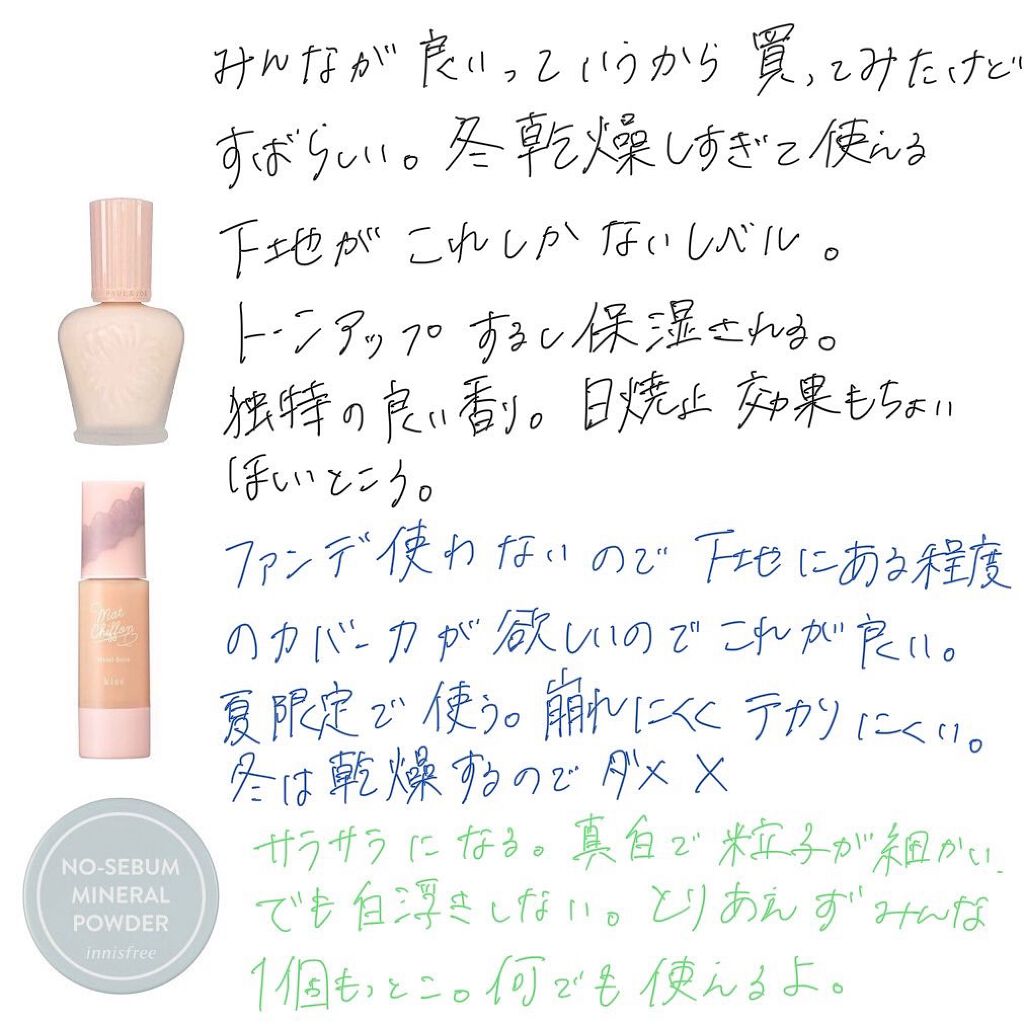 みんなが良いっていうから買ってみたけど
すばらしい。冬乾燥しすぎて使える
下地がこれしかないレベル。
トーンアップするし保湿される。
独特の良い香り。日焼止効果もちょい
ほしいところ。
PAUL & JOE
ファンデ使わないので下地にある程度
のカバー力が欲しいのでこれが良い。
夏限定で使う。崩れにくくテカりにくい。
冬は乾燥するのでダメ×
Mat
Chiffon
kiss
サラサラになる。真白で粒子が細かい、
でも白浮きしない。とりあえずみんな
1個もっとこ。何でも使えるよ。
NO-SEBUM
MINERAL
POWDER
innisfree